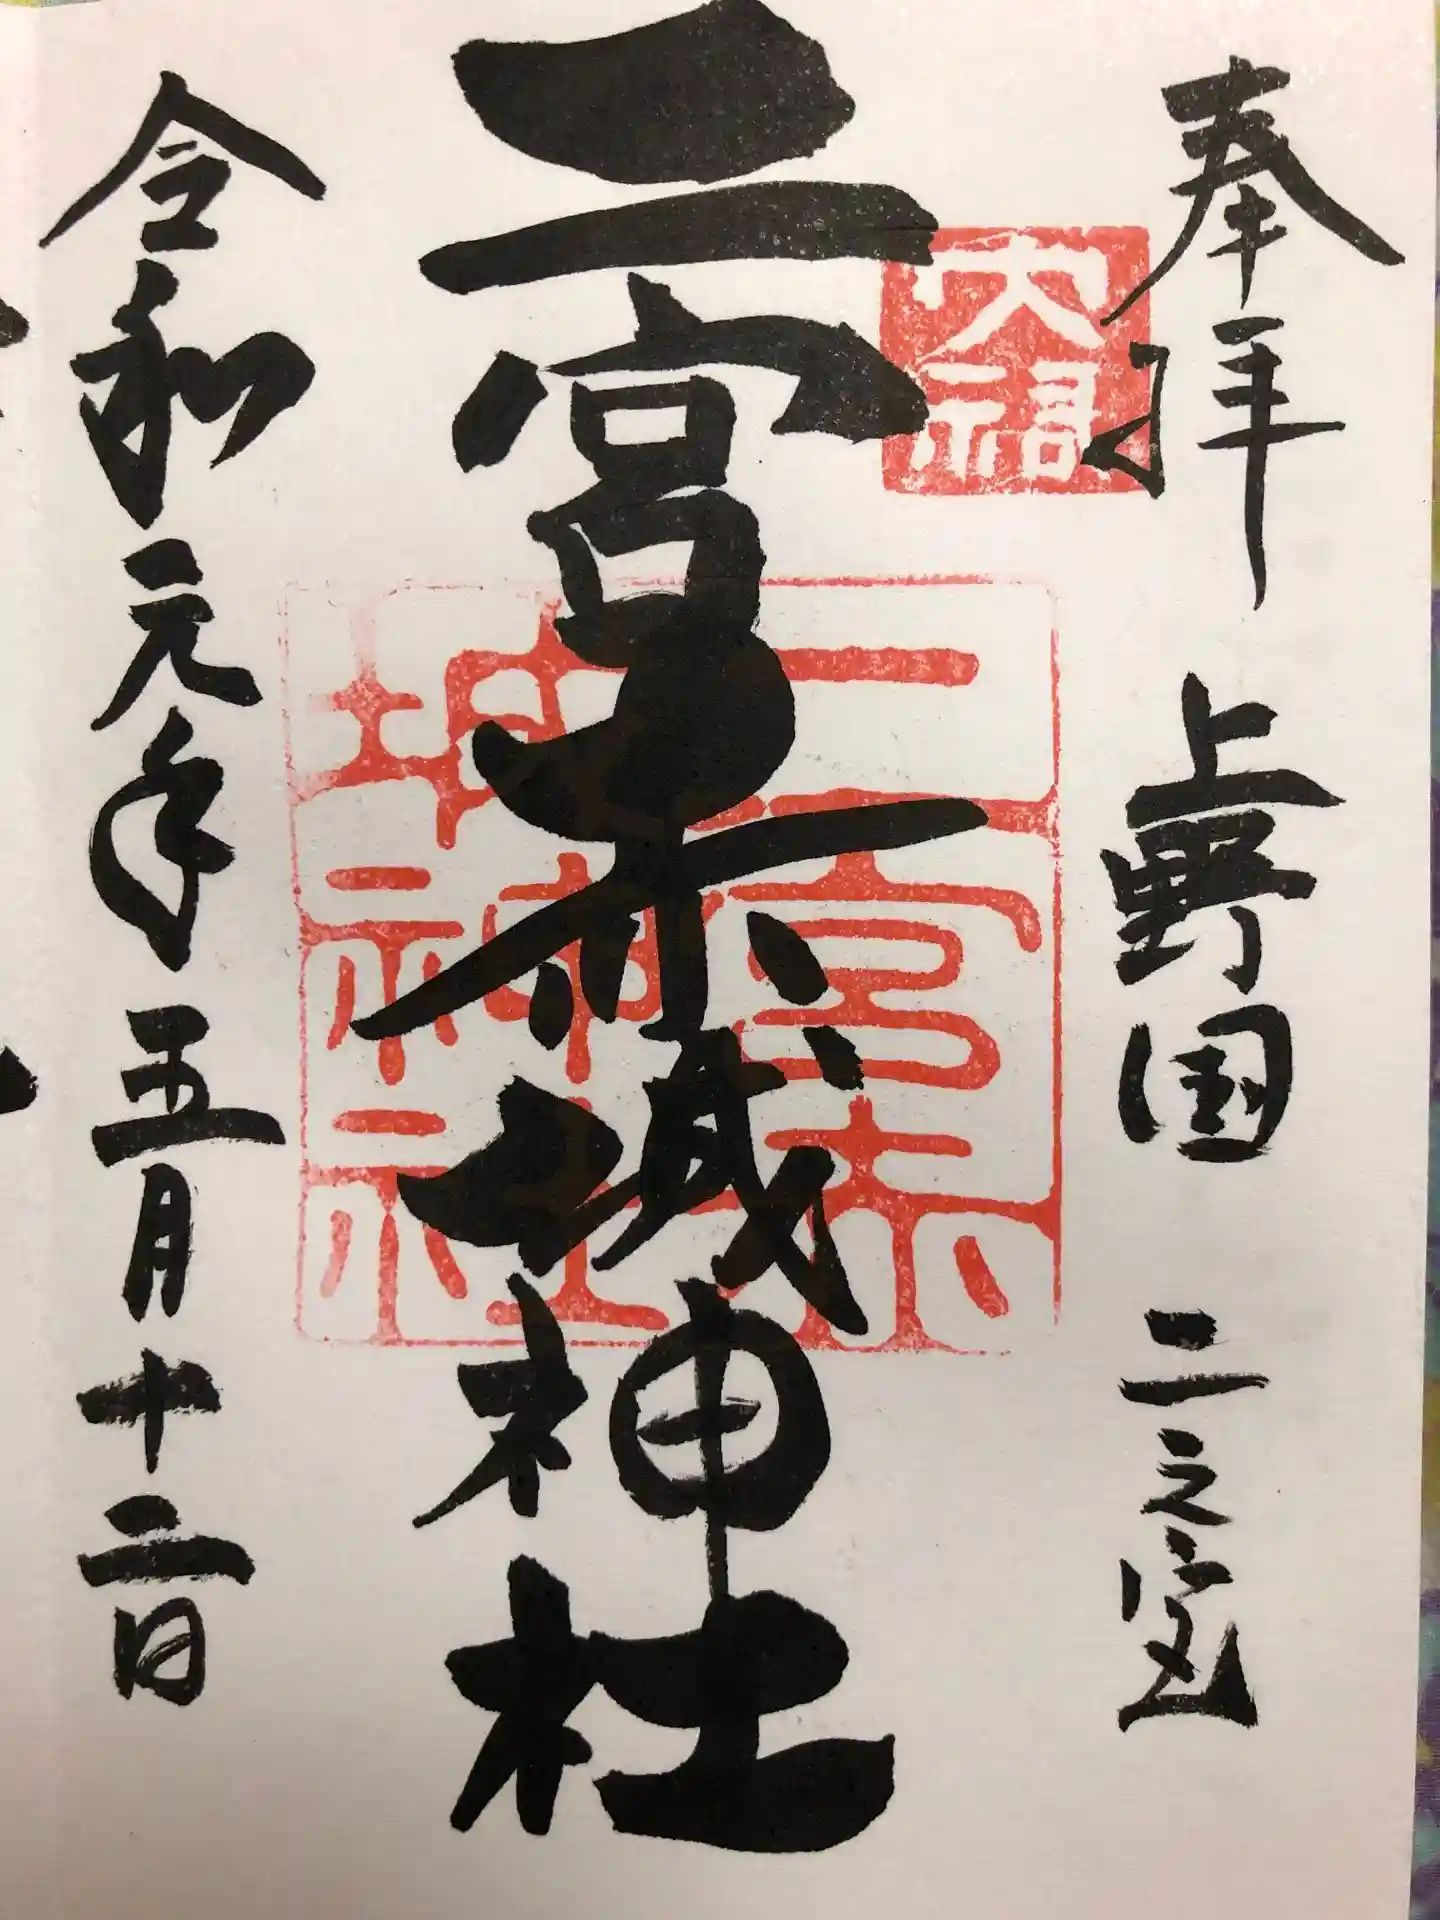 奉拝 上野国 二之宮
大福
二宮赤城神社
二宮赤
城神社
令和元年五月十二日